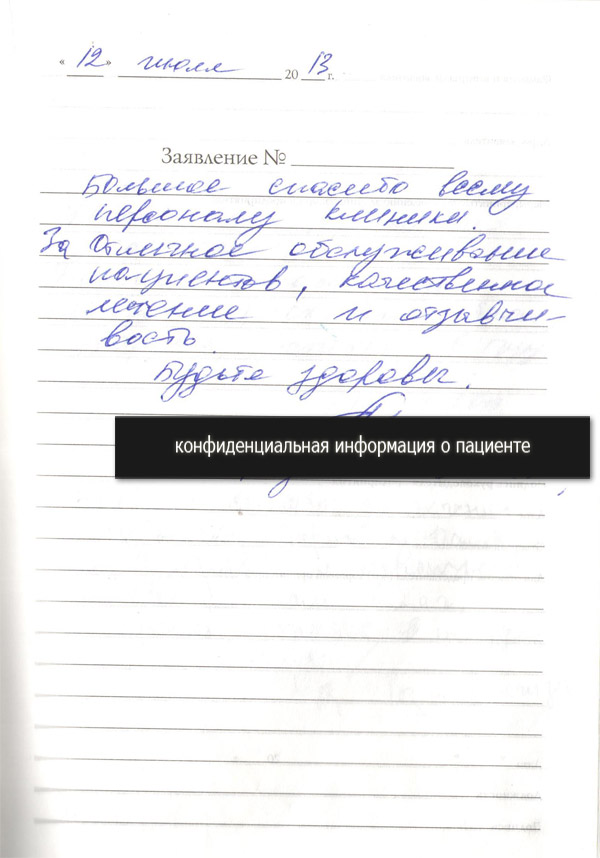 « 12 » июля 20 13 г.
Заявление №
Большое спасибо всему
персоналу клиники.
За отличное обслуживание
пациентов, качественное
лечение и отзывчи-
вость.
Будьте здоровы.
конфиденциальная информация о пациенте